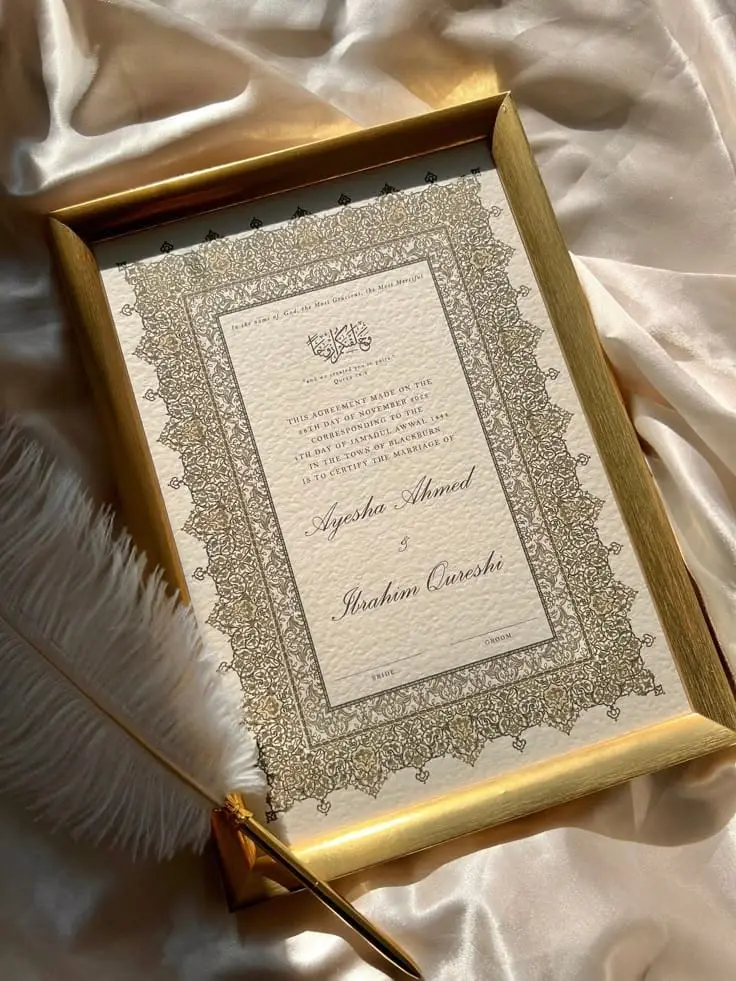 In the name of God, the Most Gracious, the Most Merciful
وخلقناكم أزواجا
"and we created you in pairs."
Quran 78:8
THIS AGREEMENT MADE ON THE
DAY OF NOVEMBER
CORRESPONDING TO THE
DAY OF JAMADUL AWWAL
IN THE TOWN OF BLACKBURN
IS TO CERTIFY THE MARRIAGE OF
Ayesha Ahmed
&
Ibrahim Qureshi
BRIDE GROOM